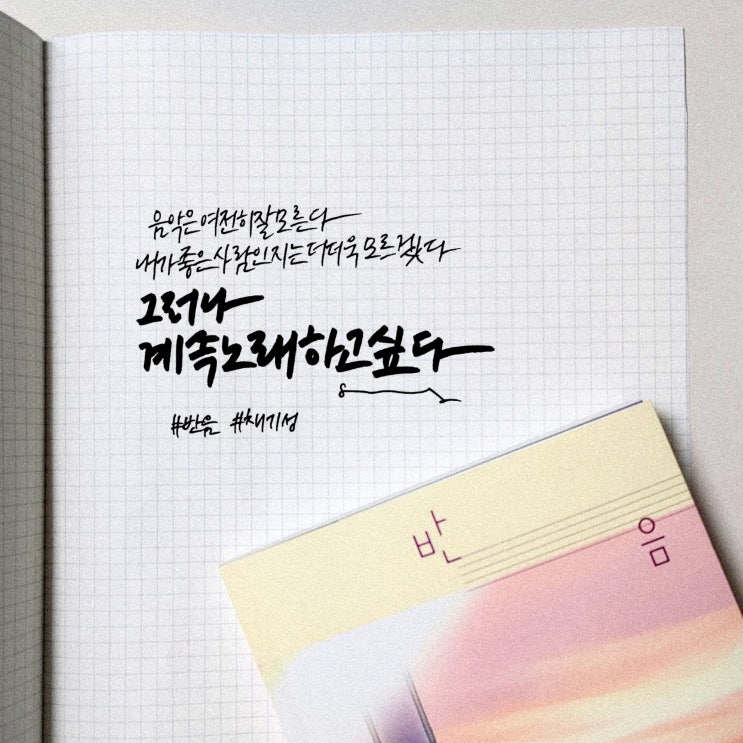 음악은 여전히 잘 모른다
내가 좋은 사람인지는 더더욱 모르겠다
그러나
계속 노래하고 싶다
#반음 #채기성
반음